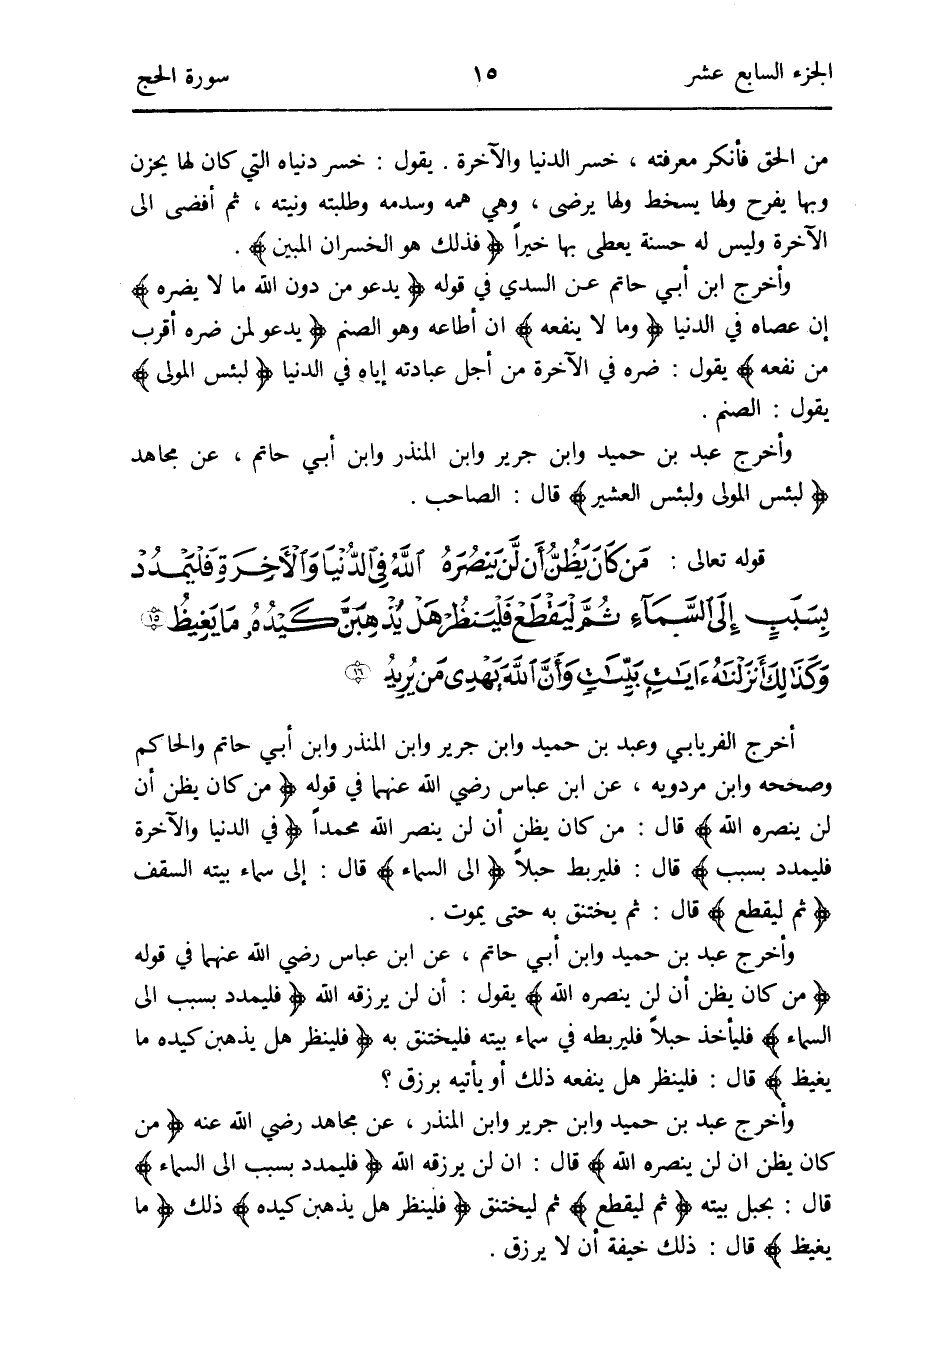 الجزء السابع عشر ١٥ سورة الحج
من الحق فأنكر معرفته ، خسر الدنيا والآخرة . يقول : خسر دنياه التي كان لها يحزن
وبها يفرح ولها يسخط ولها يرضى ، وهي همه وسدمه وطلبته ونيته ، ثم أفضى الى
الآخرة وليس له حسنة يعطى بها خيراً ﴿ فذلك هو الخسران المبين ﴾ .
وأخرج ابن أبي حاتم عن السدي في قوله ﴿ يدعو من دون الله ما لا يضره ﴾
إن عصاه في الدنيا ﴿ وما لا ينفعه ﴾ ان أطاعه وهو الصنم ﴿ يدعو لمن ضره أقرب
من نفعه ﴾ يقول : ضره في الآخرة من أجل عبادته إياه في الدنيا ﴿ لبئس المولى ﴾
يقول : الصنم .
وأخرج عبد بن حميد وابن جرير وابن المنذر وابن أبي حاتم ، عن مجاهد
﴿ لبئس المولى ولبئس العشير ﴾ قال : الصاحب .
قوله تعالى : مَن كَانَ يَظُنُّ أَن لَّن يَنصُرَهُ ٱللَّهُ فِى ٱلدُّنْيَا وَٱلْأٓخِرَةِ فَلْيَمْدُدْ
بِسَبَبٍ إِلَى ٱلسَّمَآءِ ثُمَّ لْيَقْطَعْ فَلْيَنظُرْ هَلْ يُذْهِبَنَّ كَيْدُهُۥ مَا يَغِيظُ ١٥
وَكَذَٰلِكَ أَنزَلْنَٰهُ ءَايَٰتٍۭ بَيِّنَٰتٍ وَأَنَّ ٱللَّهَ يَهْدِى مَن يُرِيدُ ١٦
أخرج الفريابي وعبد بن حميد وابن جرير وابن المنذر وابن أبي حاتم والحاكم
وصححه وابن مردويه ، عن ابن عباس رضي الله عنهما في قوله ﴿ من كان يظن أن
لن ينصره الله ﴾ قال : من كان يظن أن لن ينصر الله محمداً ﴿ في الدنيا والآخرة
فليمدد بسبب ﴾ قال : فليربط حبلاً ﴿ الى السماء ﴾ قال : إلى سماء بيته السقف
﴿ ثم ليقطع ﴾ قال : ثم يختنق به حتى يموت .
وأخرج عبد بن حميد وابن أبي حاتم ، عن ابن عباس رضي الله عنهما في قوله
﴿ من كان يظن أن لن ينصره الله ﴾ يقول : أن لن يرزقه الله ﴿ فليمدد بسبب الى
السماء ﴾ فليأخذ حبلاً فليربطه في سماء بيته فليختنق به ﴿ فلينظر هل يذهبن كيده ما
يغيظ ﴾ قال : فلينظر هل ينفعه ذلك أو يأتيه برزق ؟
وأخرج عبد بن حميد وابن جرير وابن المنذر ، عن مجاهد رضي الله عنه ﴿ من
كان يظن ان لن ينصره الله ﴾ قال : ان لن يرزقه الله ﴿ فليمدد بسبب الى السماء ﴾
قال : بحبل بيته ﴿ ثم ليقطع ﴾ ثم ليختنق ﴿ فلينظر هل يذهبن كيده ﴾ ذلك ﴿ ما
يغيظ ﴾ قال : ذلك خيفة أن لا يرزق .